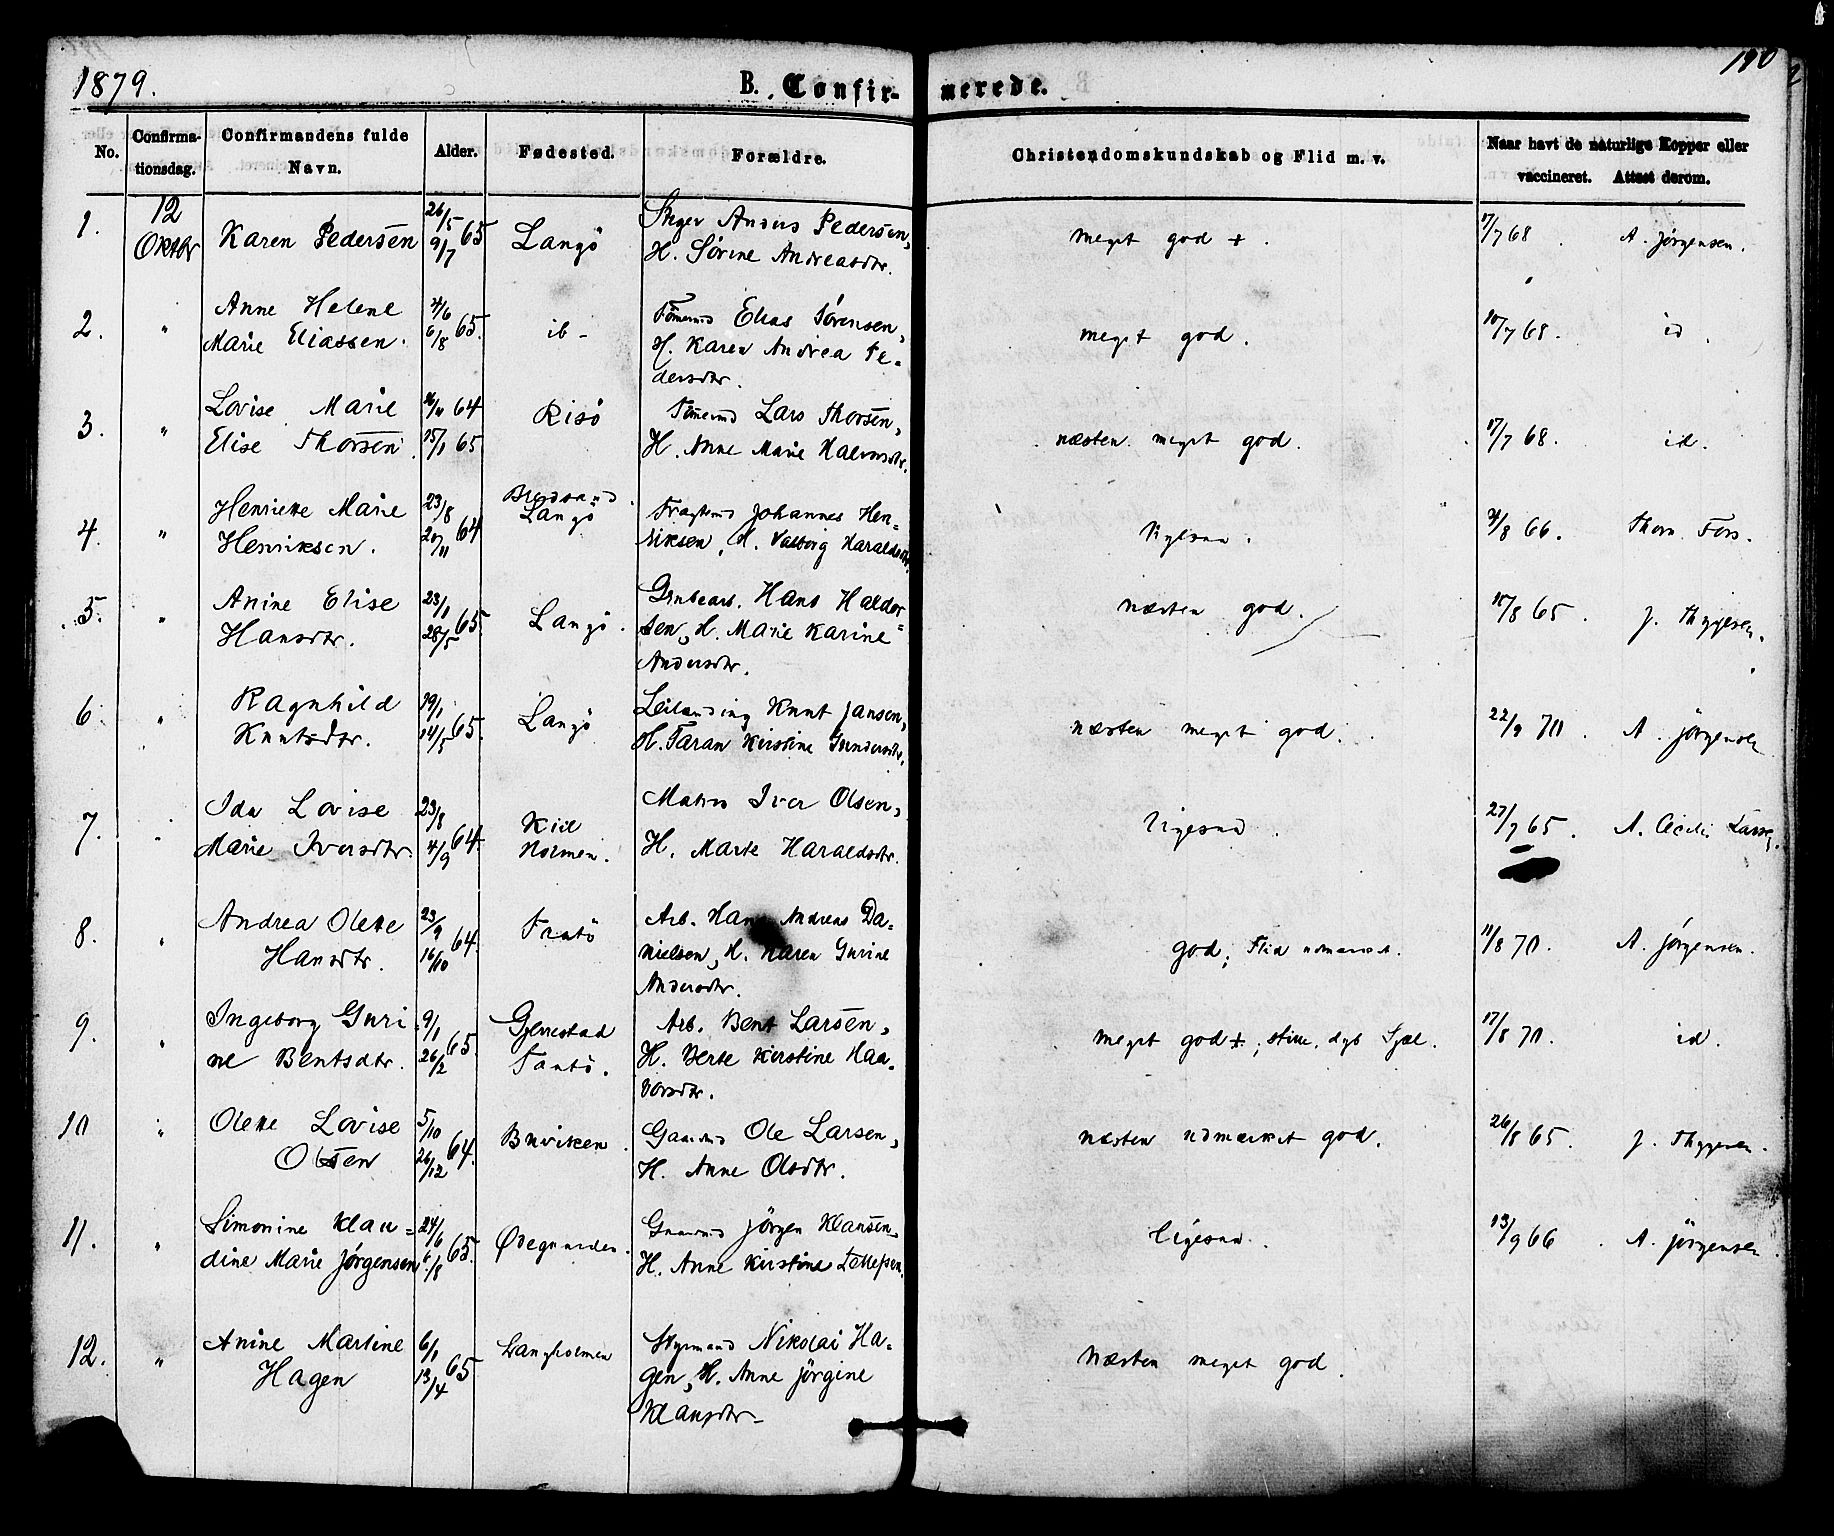 1879.
B. Confir- merede.
190
No.
Confirma-
tionsdag.
Confirmandens fulde
Navn.
Alder.
Fødested.
Forældre.
Christendomskundskab og Flid m. v.
Naar havt de naturlige Kopper eller
vaccineret. Attest derom.
1. 12 Oktbr Karen Pedersen 26/5 9/7 65 Langö
Anders Pedersen,
H. Sörine Andreasdtr.
meget god +. 17/7 68. A. Jörgensen.
2. " Anne Helene
Marie Eliassen. 4/6 6/8 65. ib-
Tömmrmd Elias Sörensen,
H. Karen Andrea Pe-
dersdtr.
meget god. 10/7 68. id.
3. " Lovise Marie
Elise Thorsen. 16/11 64 15/1 65 Risö
Tömmrmd Lars Thorsen,
H. Anne Marie Halvorsdtr.
næsten meget god. 17/7 68. id.
4. " Henriette Marie
Henriksen. 23/8 20/11 64 Bredsand
Langö
Fragtmd Johannes Hen-
riksen, H. Valborg Haraldsdtr.
ligesaa. 21/8 66. Thorv. Fors.
5. " Anine Elise
Hansdtr. 23/1 28/5 65. Langö.
Grubearb. Hans Haldor-
sen, H. Marie Karine
Andersdtr.
næsten god. 10/8 65. J. Thygesen.
6. " Ragnhild
Knutsdtr. 19/1 14/5 65. Langö
Leilænding Knut Jansen,
H. Taran Kirstine Gundersdtr.
næsten meget god. 22/9 70. A. Jörgensen
7. " Ida Lovise
Marie Iversdtr. 23/8 4/9 64. Kiil
Holmen.
Matros Iver Olsen,
H. Marte Haraldsdtr.
ligesaa. 27/7 65. A. Cecilie Larsen.
8. " Andrea Olette
Hansdtr. 23/9 16/10 64.
Arb. Hans Andreas Da-
nielsen, H. Karen Gurine
Andersdtr.
god; Flid udmærket. 11/8 70. A. Jörgensen.
9. " Ingeborg Guri
ne Bentsdtr. 9/1 26/2 65 Gjerrestad
Arb. Bent Larsen,
H. Berte Kirstine Haa-
vorsdtr.
meget god +; stille, dyb Sjæl. 17/8 70. id.
10 " Olette Lovise
Olsen 5/10 26/12 64. Buviken.
Gaardmd Ole Larsen,
H. Anne Olsdtr.
næsten udmærket god. 26/8 65. J. Thygesen.
11. " Simonine Klau-
dine Marie Jörgensen 24/6 6/8 65. Ødegaarden.
Gaardmd Jörgen Klausen,
H. Anne Kirstine Tellefsen.
ligesaa. 13/9 66. A. Jörgensen.
12. " Anine Martine
Hagen 6/1 13/4 65 Langholmen
Styrmand Nikolai Ha-
gen, H. Anne Jörgine
Klausdtr-
næsten meget god.